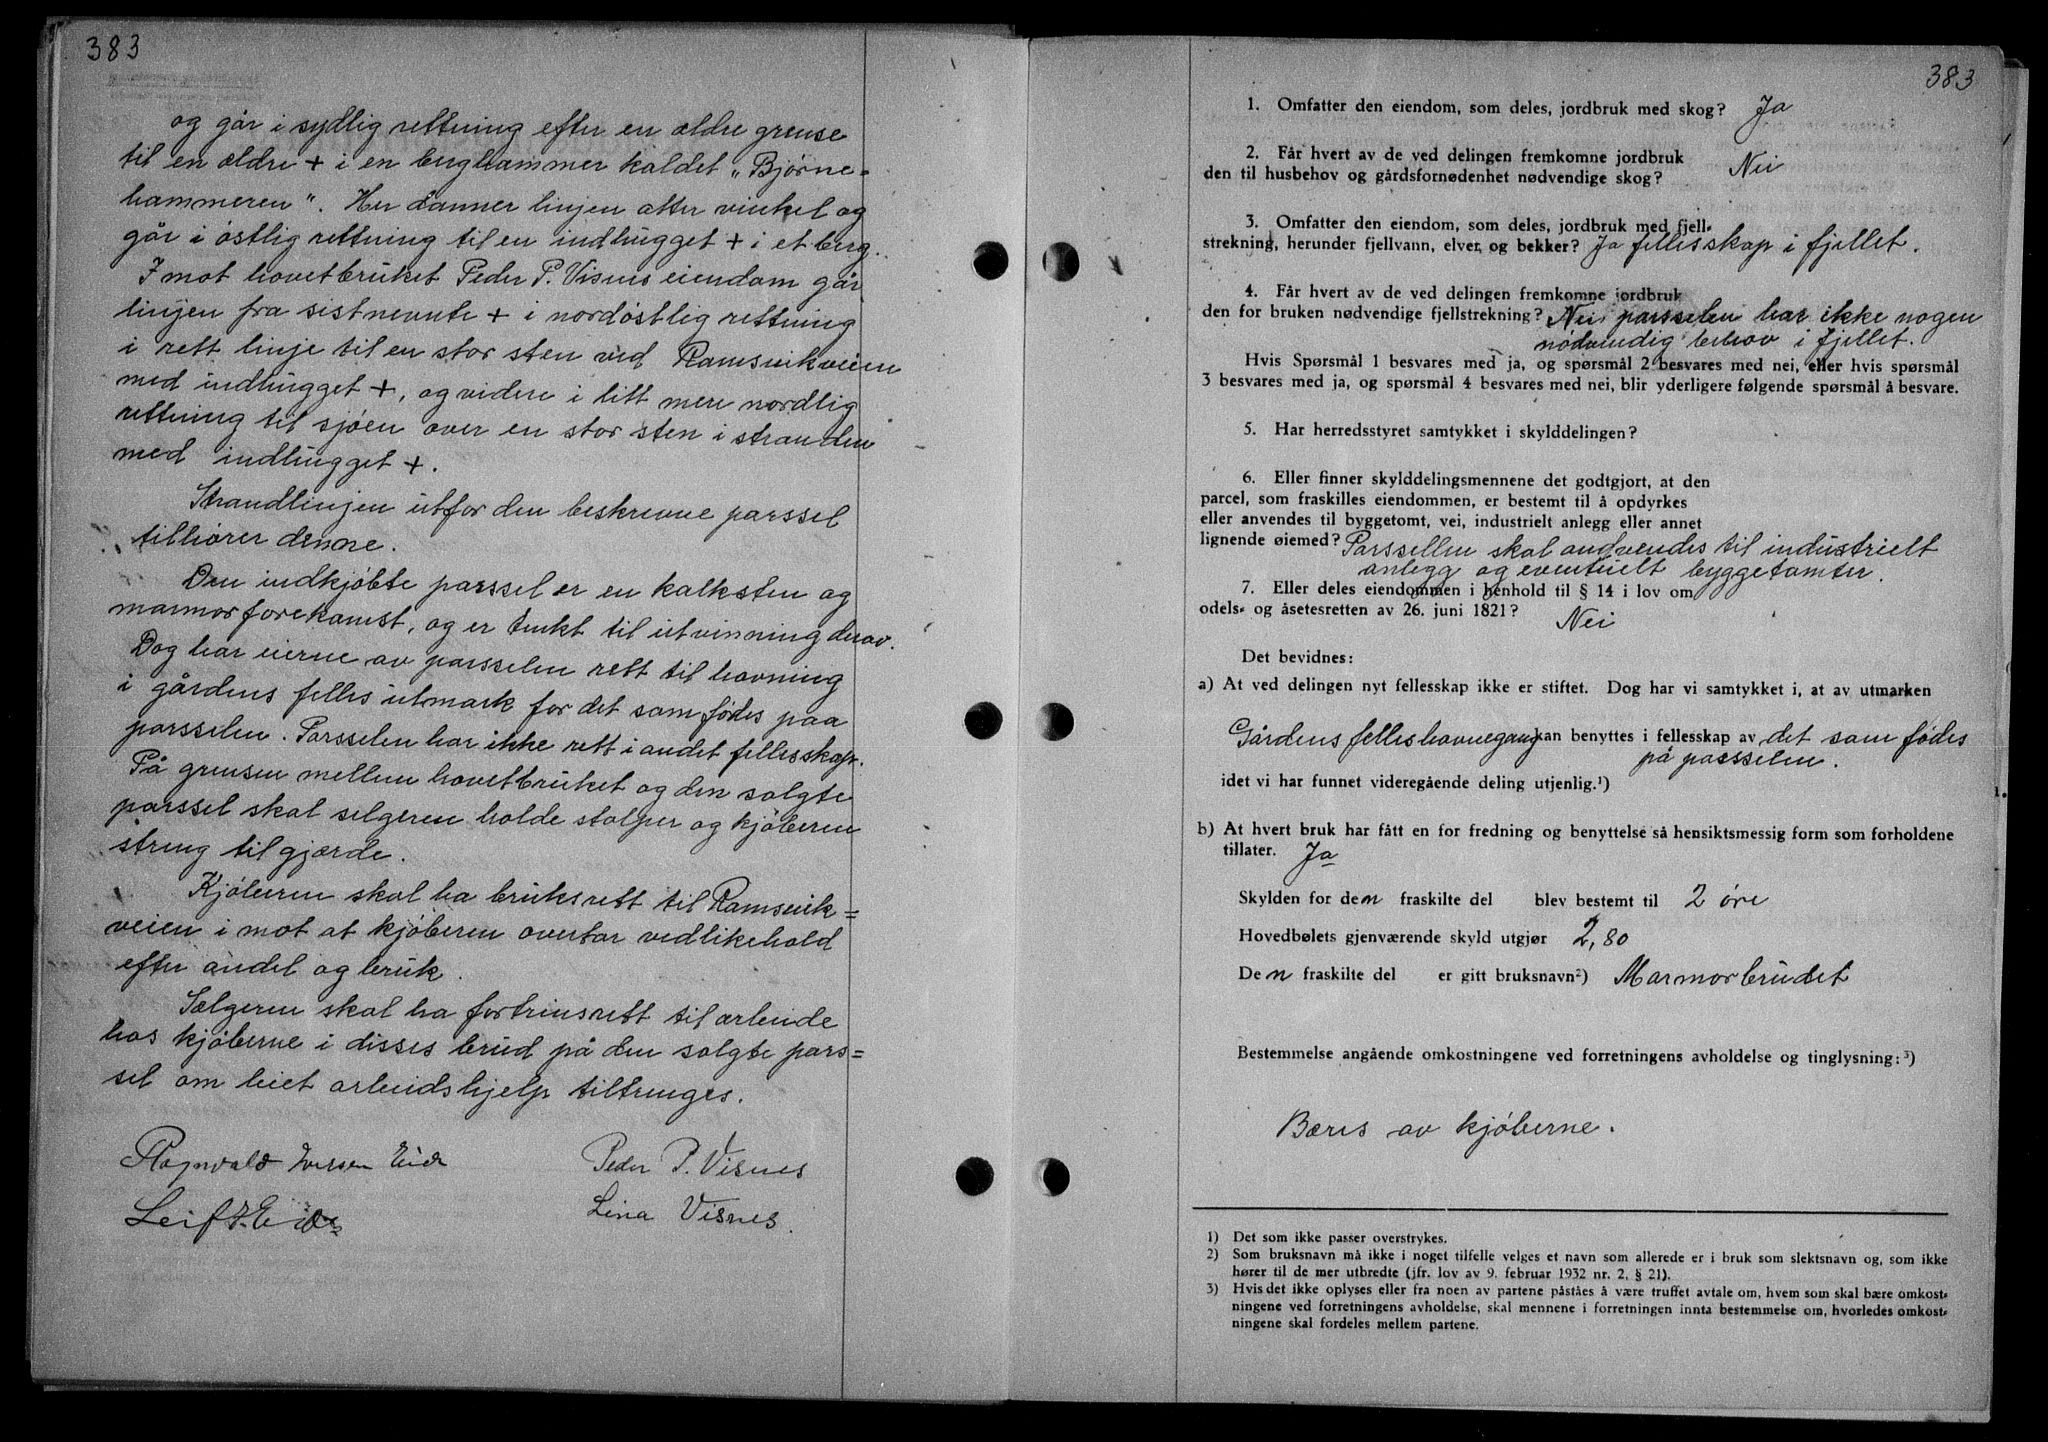 383
og går i sydlig rettning efter en ældre grense
til en ældre + i en berghammer kaldet „Bjørne=
hammeren". Her danner linjen atter vinkel og
går i østlig rettning til en indhugget + i et berg.
I mot hovetbruket Peder P. Visnes eiendom går
linjen fra sistnevnte + i nordøstlig rettning
i rett linje til en stor sten ved Ramsvikveien
med indhugget +, og videre i litt mere nordlig
rettning til sjøen over en stor sten i stranden
med indhugget +.
Strandlinjen utfor den beskrevne parssel
tilhører denne.
Den indkjøbte parssel er en kalksten og
marmorforekomst, og er tenkt til utvinning derav.
Dog har eierne av parsselen rett til havning
i gårdens felles utmark for det som fødes paa
parsselen. Parsselen har ikke rett i andet fellesskap.
På grensen mellem hovetbruket og den solgte
parssel skal selgeren holde stolper og kjøberen
streng til gjærde.
Kjøberen skal ha bruksrett til Ramsvik=
veien i mot at kjøberen overtar vedlikehold
efter andel og bruk.
Sælgeren skal ha fortrinsrett til arbeide
hos kjøberne i disses brud på den solgte pars=
sel om leiet arbeidshjelp tiltrenges.
Ragnvald Iversen Eide Peder P. Visnes
Leif I. Eide Lina Visnes.
383
1. Omfatter den eiendom, som deles, jordbruk med skog? Ja
2. Får hvert av de ved delingen fremkomne jordbruk
den til husbehov og gårdsfornødenhet nødvendige skog? Nei
3. Omfatter den eiendom, som deles, jordbruk med fjell-
strekning, herunder fjellvann, elver og bekker? Ja fellesskap i fjellet.
4. Får hvert av de ved delingen fremkomne jordbruk
den for bruken nødvendige fjellstrekning? Nei parsselen har ikke nogen
nødvendig behov i fjellet.
Hvis Spørsmål 1 besvares med ja, og spørsmål 2 besvares med nei, eller hvis spørsmål
3 besvares med ja, og spørsmål 4 besvares med nei, blir yderligere følgende spørsmål å besvare.
5. Har herredsstyret samtykket i skylddelingen?
6. Eller finner skylddelingsmennene det godtgjort, at den
parcel, som fraskilles eiendommen, er bestemt til å opdyrkes
eller anvendes til byggetomt, vei, industrielt anlegg eller annet
lignende øiemed? Parssellen skal andvendes til industrielt
anlegg og eventuelt byggetomter.
7. Eller deles eiendommen i henhold til § 14 i lov om
odels- og åsetesretten av 26. juni 1821? Nei
Det bevidnes:
a) At ved delingen nyt fellesskap ikke er stiftet. Dog har vi samtykket i, at av utmarken
Gårdens felleshavnegang kan benyttes i fellesskap av det som fødes
på parsselen.
idet vi har funnet videregående deling utjenlig.¹)
b) At hvert bruk har fått en for fredning og benyttelse så hensiktsmessig form som forholdene
tillater. Ja
Skylden for den fraskilte del blev bestemt til 2 øre
Hovedbølets gjenværende skyld utgjør 2,80
Den fraskilte del er gitt bruksnavn²) Marmorbrudet
Bestemmelse angående omkostningene ved forretningens avholdelse og tinglysning:³)
Bæres av kjøberne.
1) Det som ikke passer overstrykes.
2) Som bruksnavn må ikke i noget tilfelle velges et navn som allerede er i bruk som slektsnavn og, som ikke
hører til de mer utbredte (jfr. lov av 9. februar 1932 nr. 2, § 21).
3) Hvis det ikke oplyses eller fra noen av partene påståes å være truffet avtale om, hvem som skal bære omkost-
ningene ved forretningens avholdelse, skal mennene i forretningen innta bestemmelse om, hvorledes omkost-
ningene skal fordeles mellem partene.